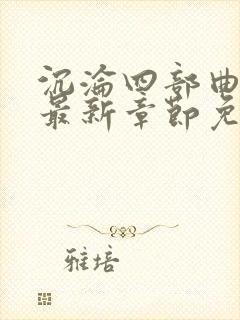 沉沦四部曲
最新章节免
雅培